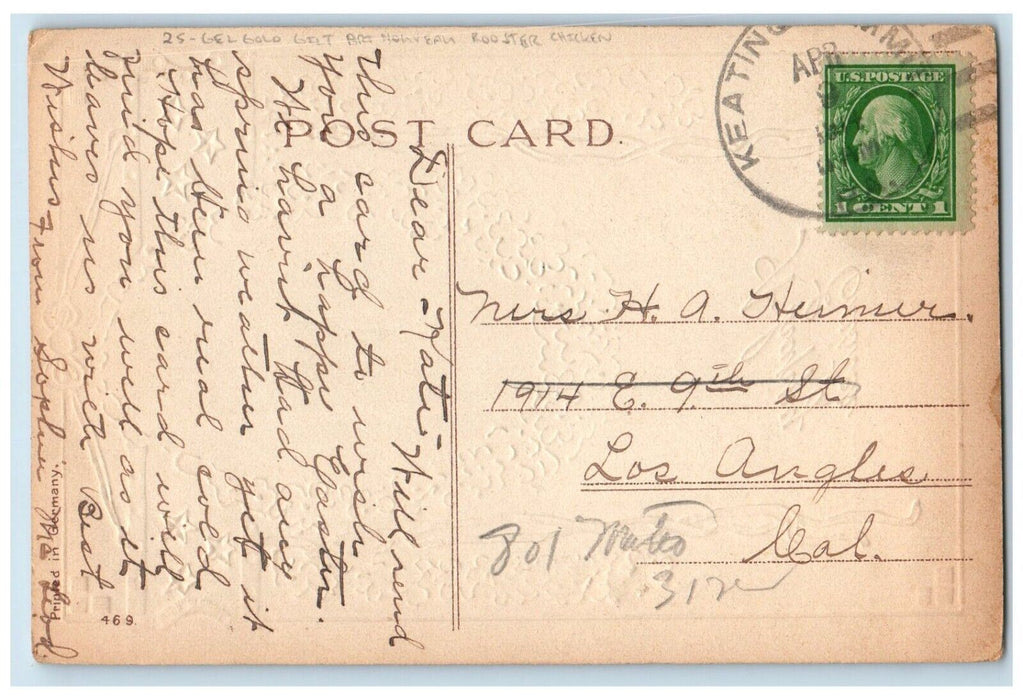 25- GEL GOLD GILT ART NOUVEAU ROOSTER CHICKEN
POST CARD.
KEATING
APR
9
U.S. POSTAGE
1 CENT 1
Dear Kate Will send
this card to wish
you a happy Easter.
We havint had any
spring weather yet it
has been real cold
Hope this card will
find you well as it
leaves us with Best
Wishes From Sophia
Mrs H. A. Heimer.
1914 E. 9th St
Los Angles
Cal.
801
312
Printed in Germany.
469.